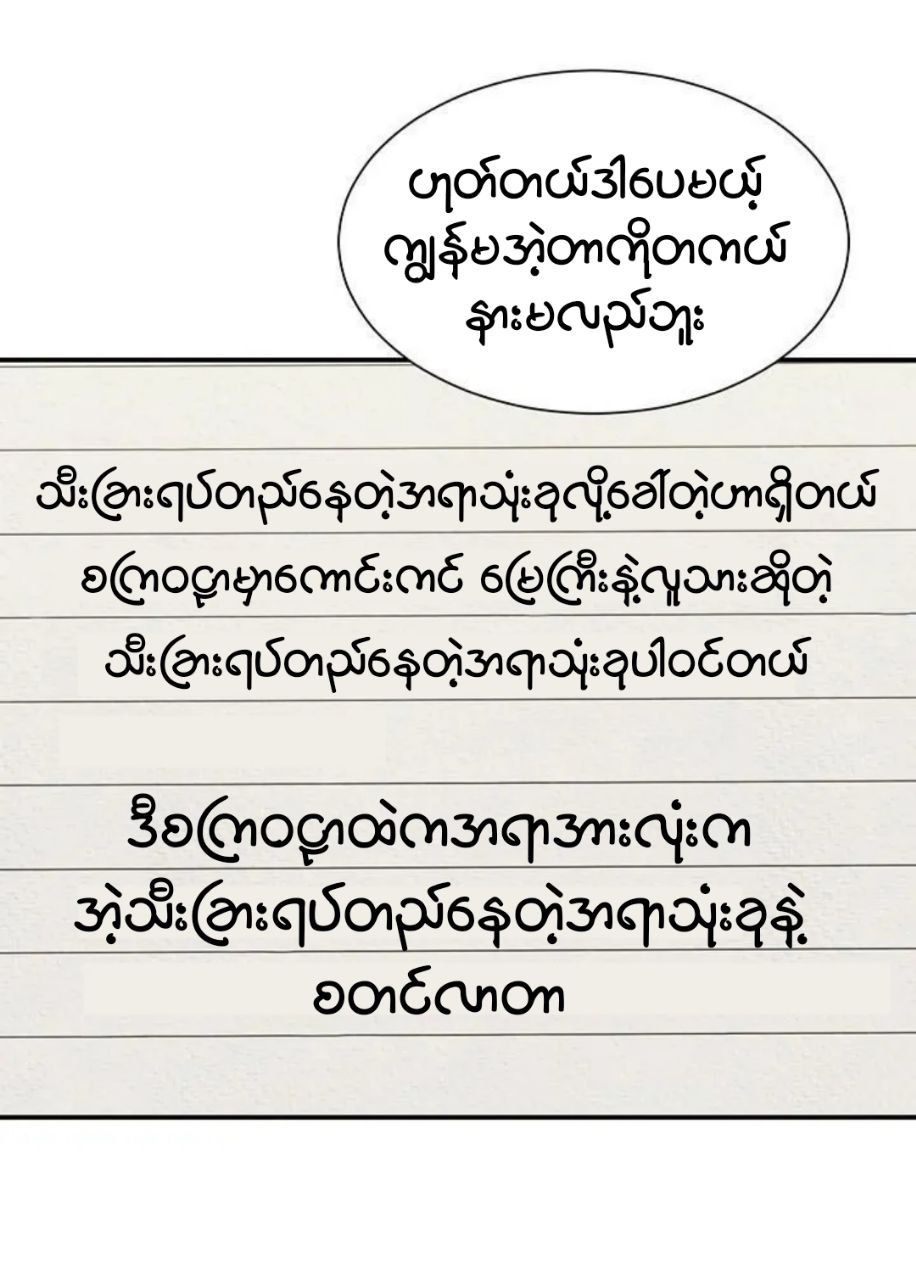 ဟုတ်တယ်ဒါပေမယ့်
ကျွန်မအဲ့တာကိုတကယ်
နားမလည်ဘူး
သီးခြားရပ်တည်နေတဲ့အရာသုံးခုလို့ခေါ်တဲ့ဟာရှိတယ်
စကြာဝဠာမှာကောင်းကင် မြေကြီးနဲ့လူသားဆိုတဲ့
သီးခြားရပ်တည်နေတဲ့အရာသုံးခုပါဝင်တယ်
ဒီစကြာဝဠာထဲကအရာအားလုံးက
အဲ့သီးခြားရပ်တည်နေတဲ့အရာသုံးခုနဲ့
စတင်လာတာ